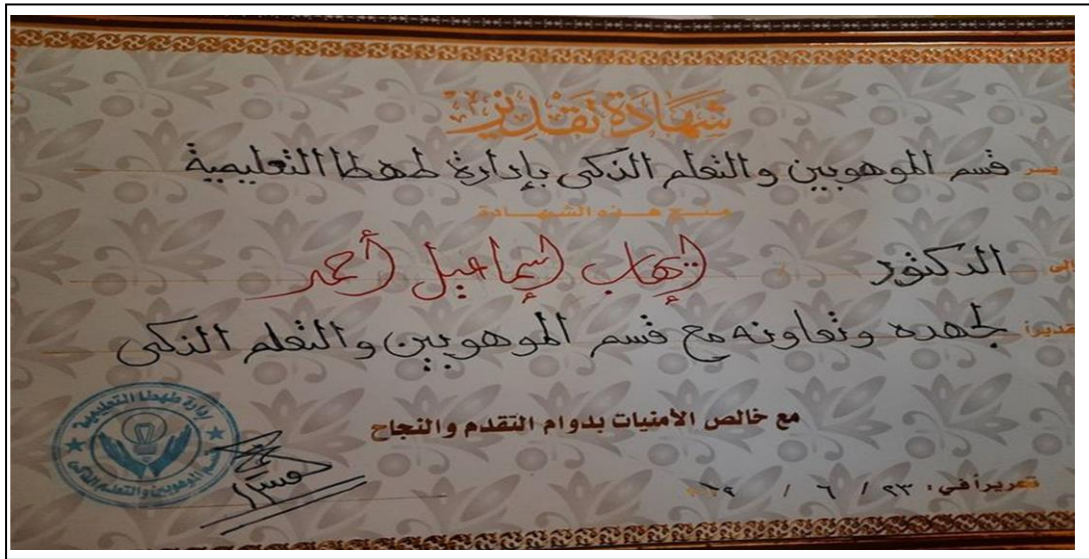 شهادة تقدير
يسر قسم الموهوبين والتعلم الذكى بإدارة طهطا التعليمية
منح هذه الشهادة
إلى الدكتور / إيهاب إسماعيل أحمد
تقديراً لجهده وتعاونه مع قسم الموهوبين والتعلم الذكى
مع خالص الأمنيات بدوام التقدم والنجاح
تحريراً في: ٢٣ / ٦ /
إدارة طهطا التعليمية
قسم الموهوبين والتعلم الذكى